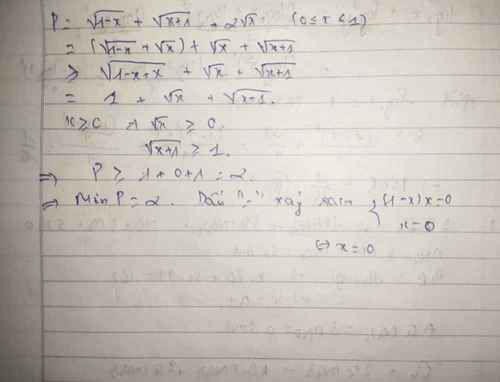 P = √1-x + √x+1 + 2√x (0 ≤ x ≤ 1)
= (√1-x + √x) + √x + √x+1
≥ √1-x+x + √x + √x+1
= 1 + √x + √x+1.
x ≥ 0 → √x ≥ 0.
√x+1 ≥ 1.
⇒ P ≥ 1+0+1 = 2
⇒ Min P = 2. Dấu "=" xảy ra { (1-x)x=0
x=0
⇔ x=0